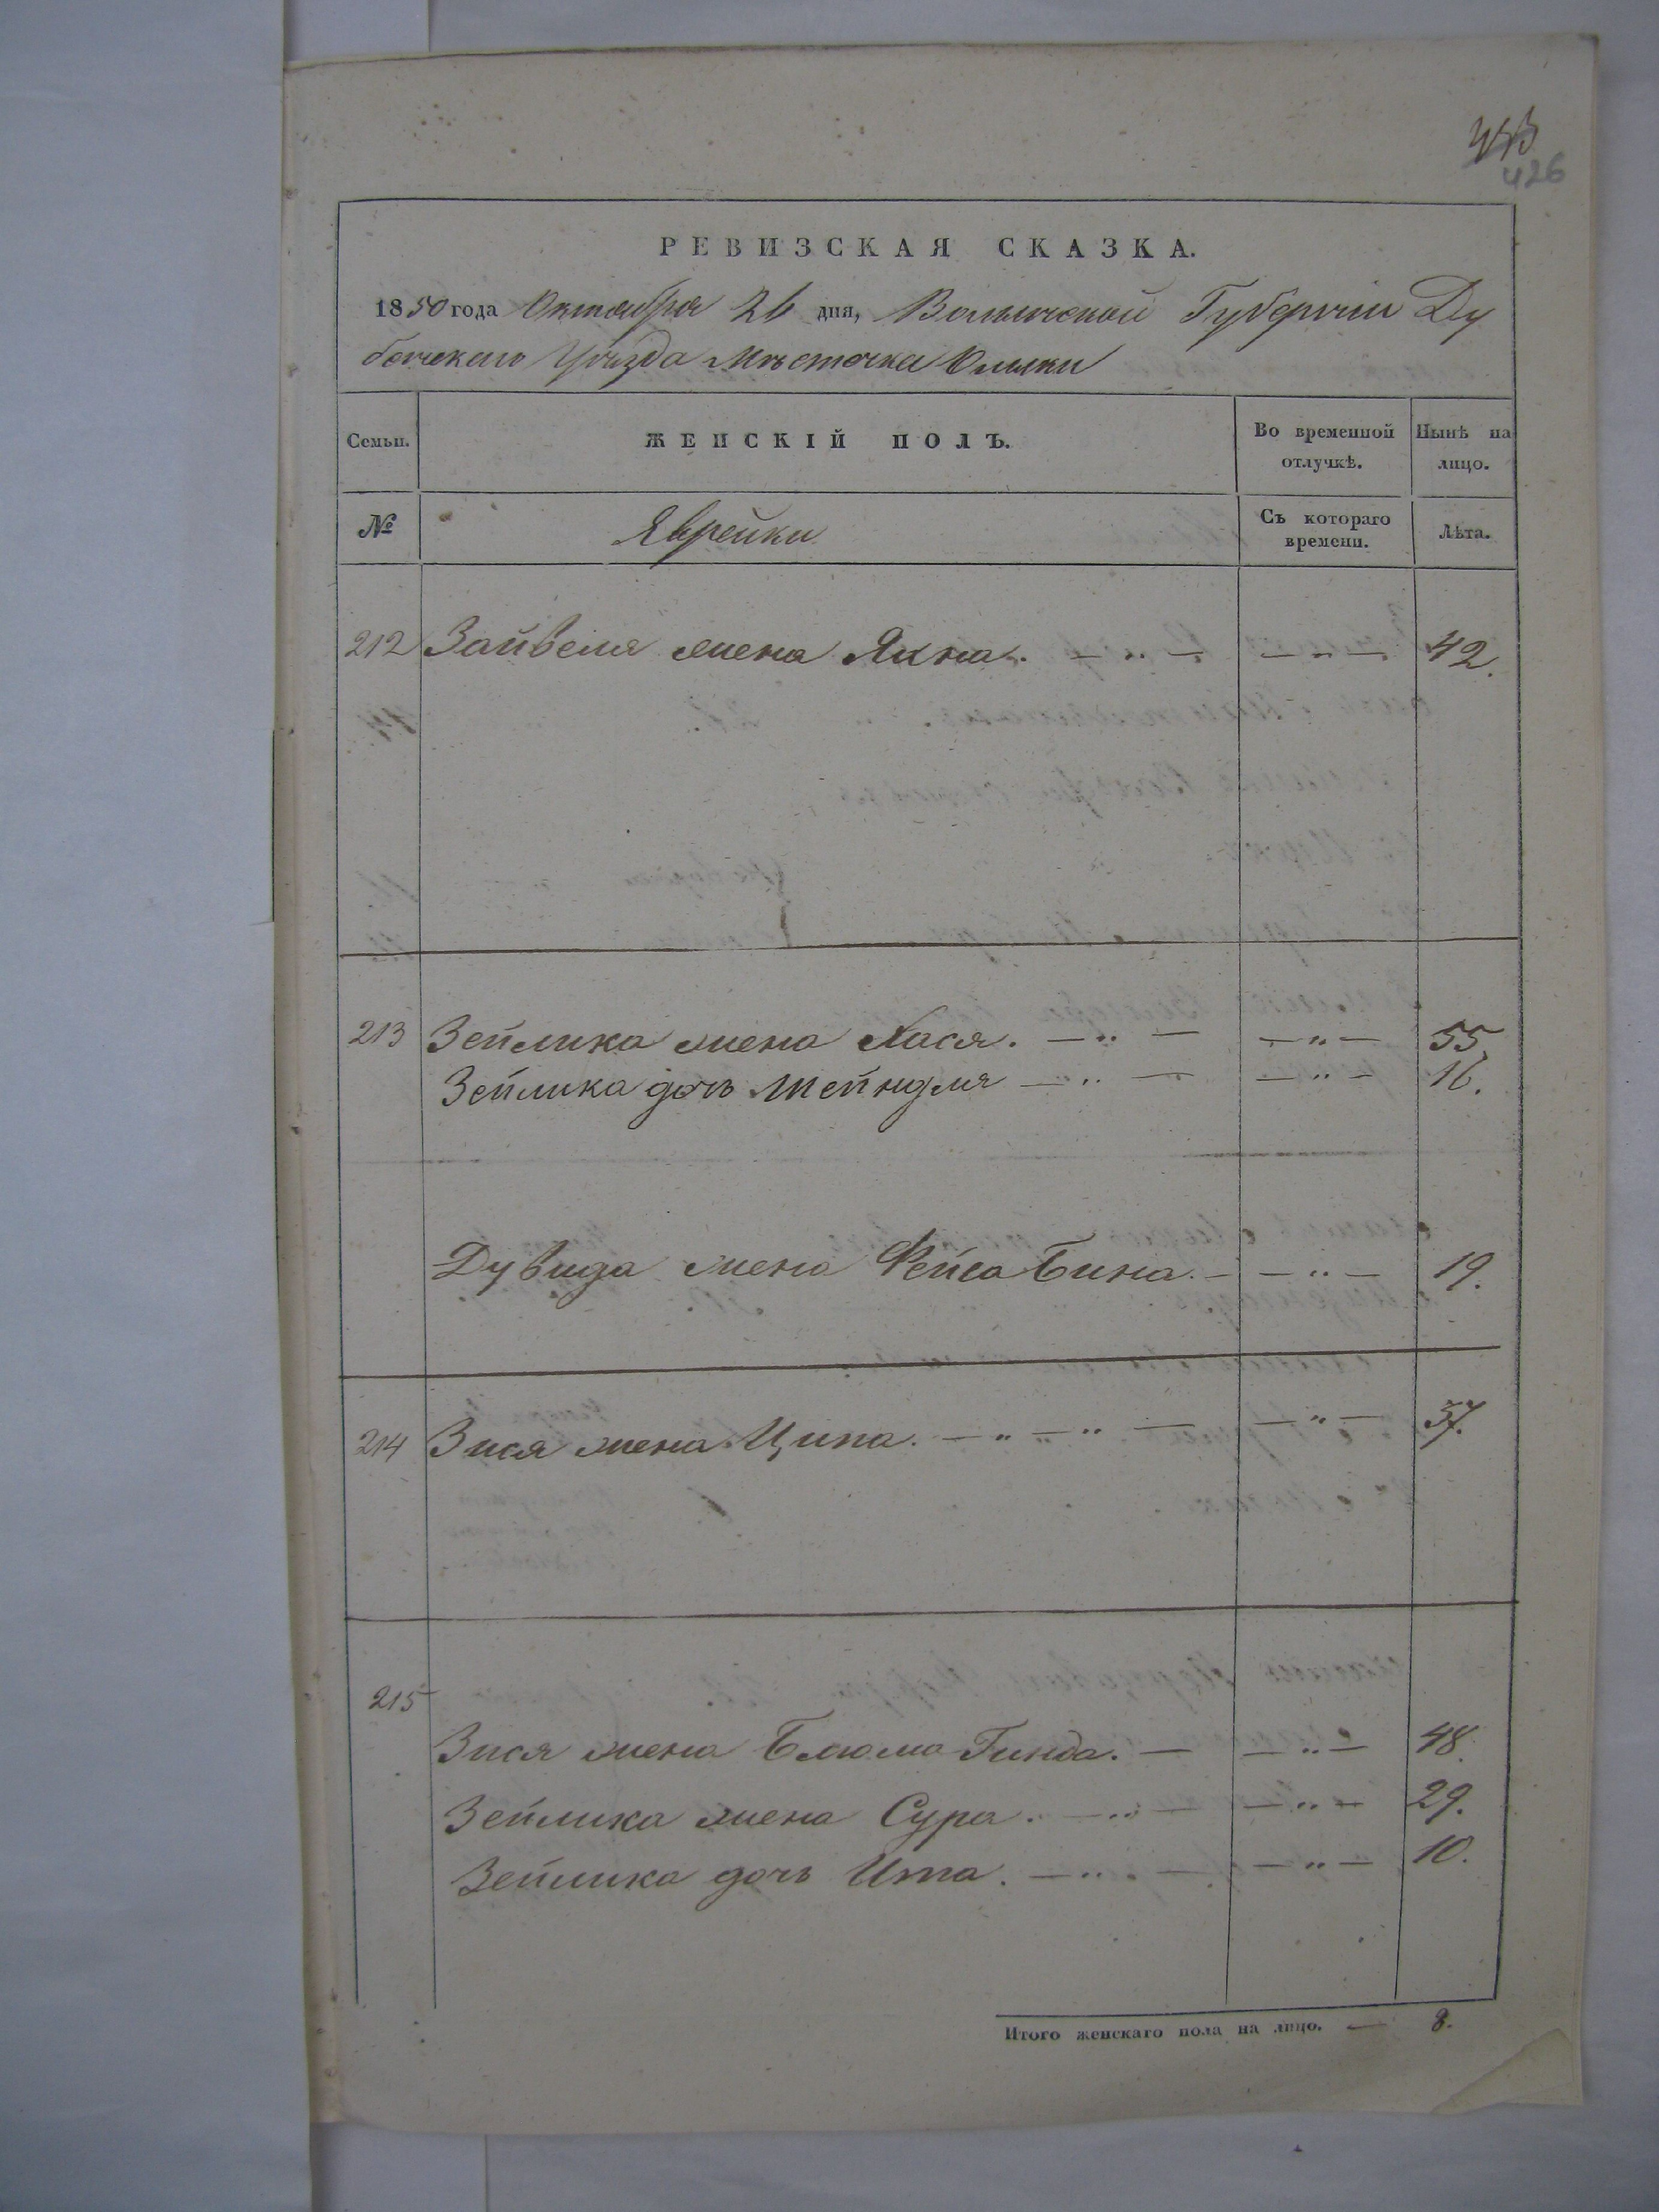 426
РЕВИЗСКАЯ СКАЗКА.
1850 года Октября 26 дня, Волынской Губернии Ду
бенскаго Уѣзда Мѣстечка Олыки
Семьи.
ЖЕНСКІЙ ПОЛЪ.
Во временной отлучкѣ.
Нынѣ на лицо.
№
Яврейки
Съ котораго времени.
Лѣта.
212 Зайвеля жена Яхна. — „ — — „ — 42.
213 Зейлика жена Хася. — „ — — „ — 55
Зейлика дочь Шейндля — „ — — „ — 16.
Дувида жена Фейга Бина. — — „ — 19.
214 Зися жена Ципа. — „ — „ — — „ — 37.
215
Зися жена Блюма Гинда. — — „ — 48.
Зейлика жена Сура. — „ — — „ — 29.
Зейлика дочь Ита. — „ — — „ — 10.
Итого женскаго пола на лицо. — 8.